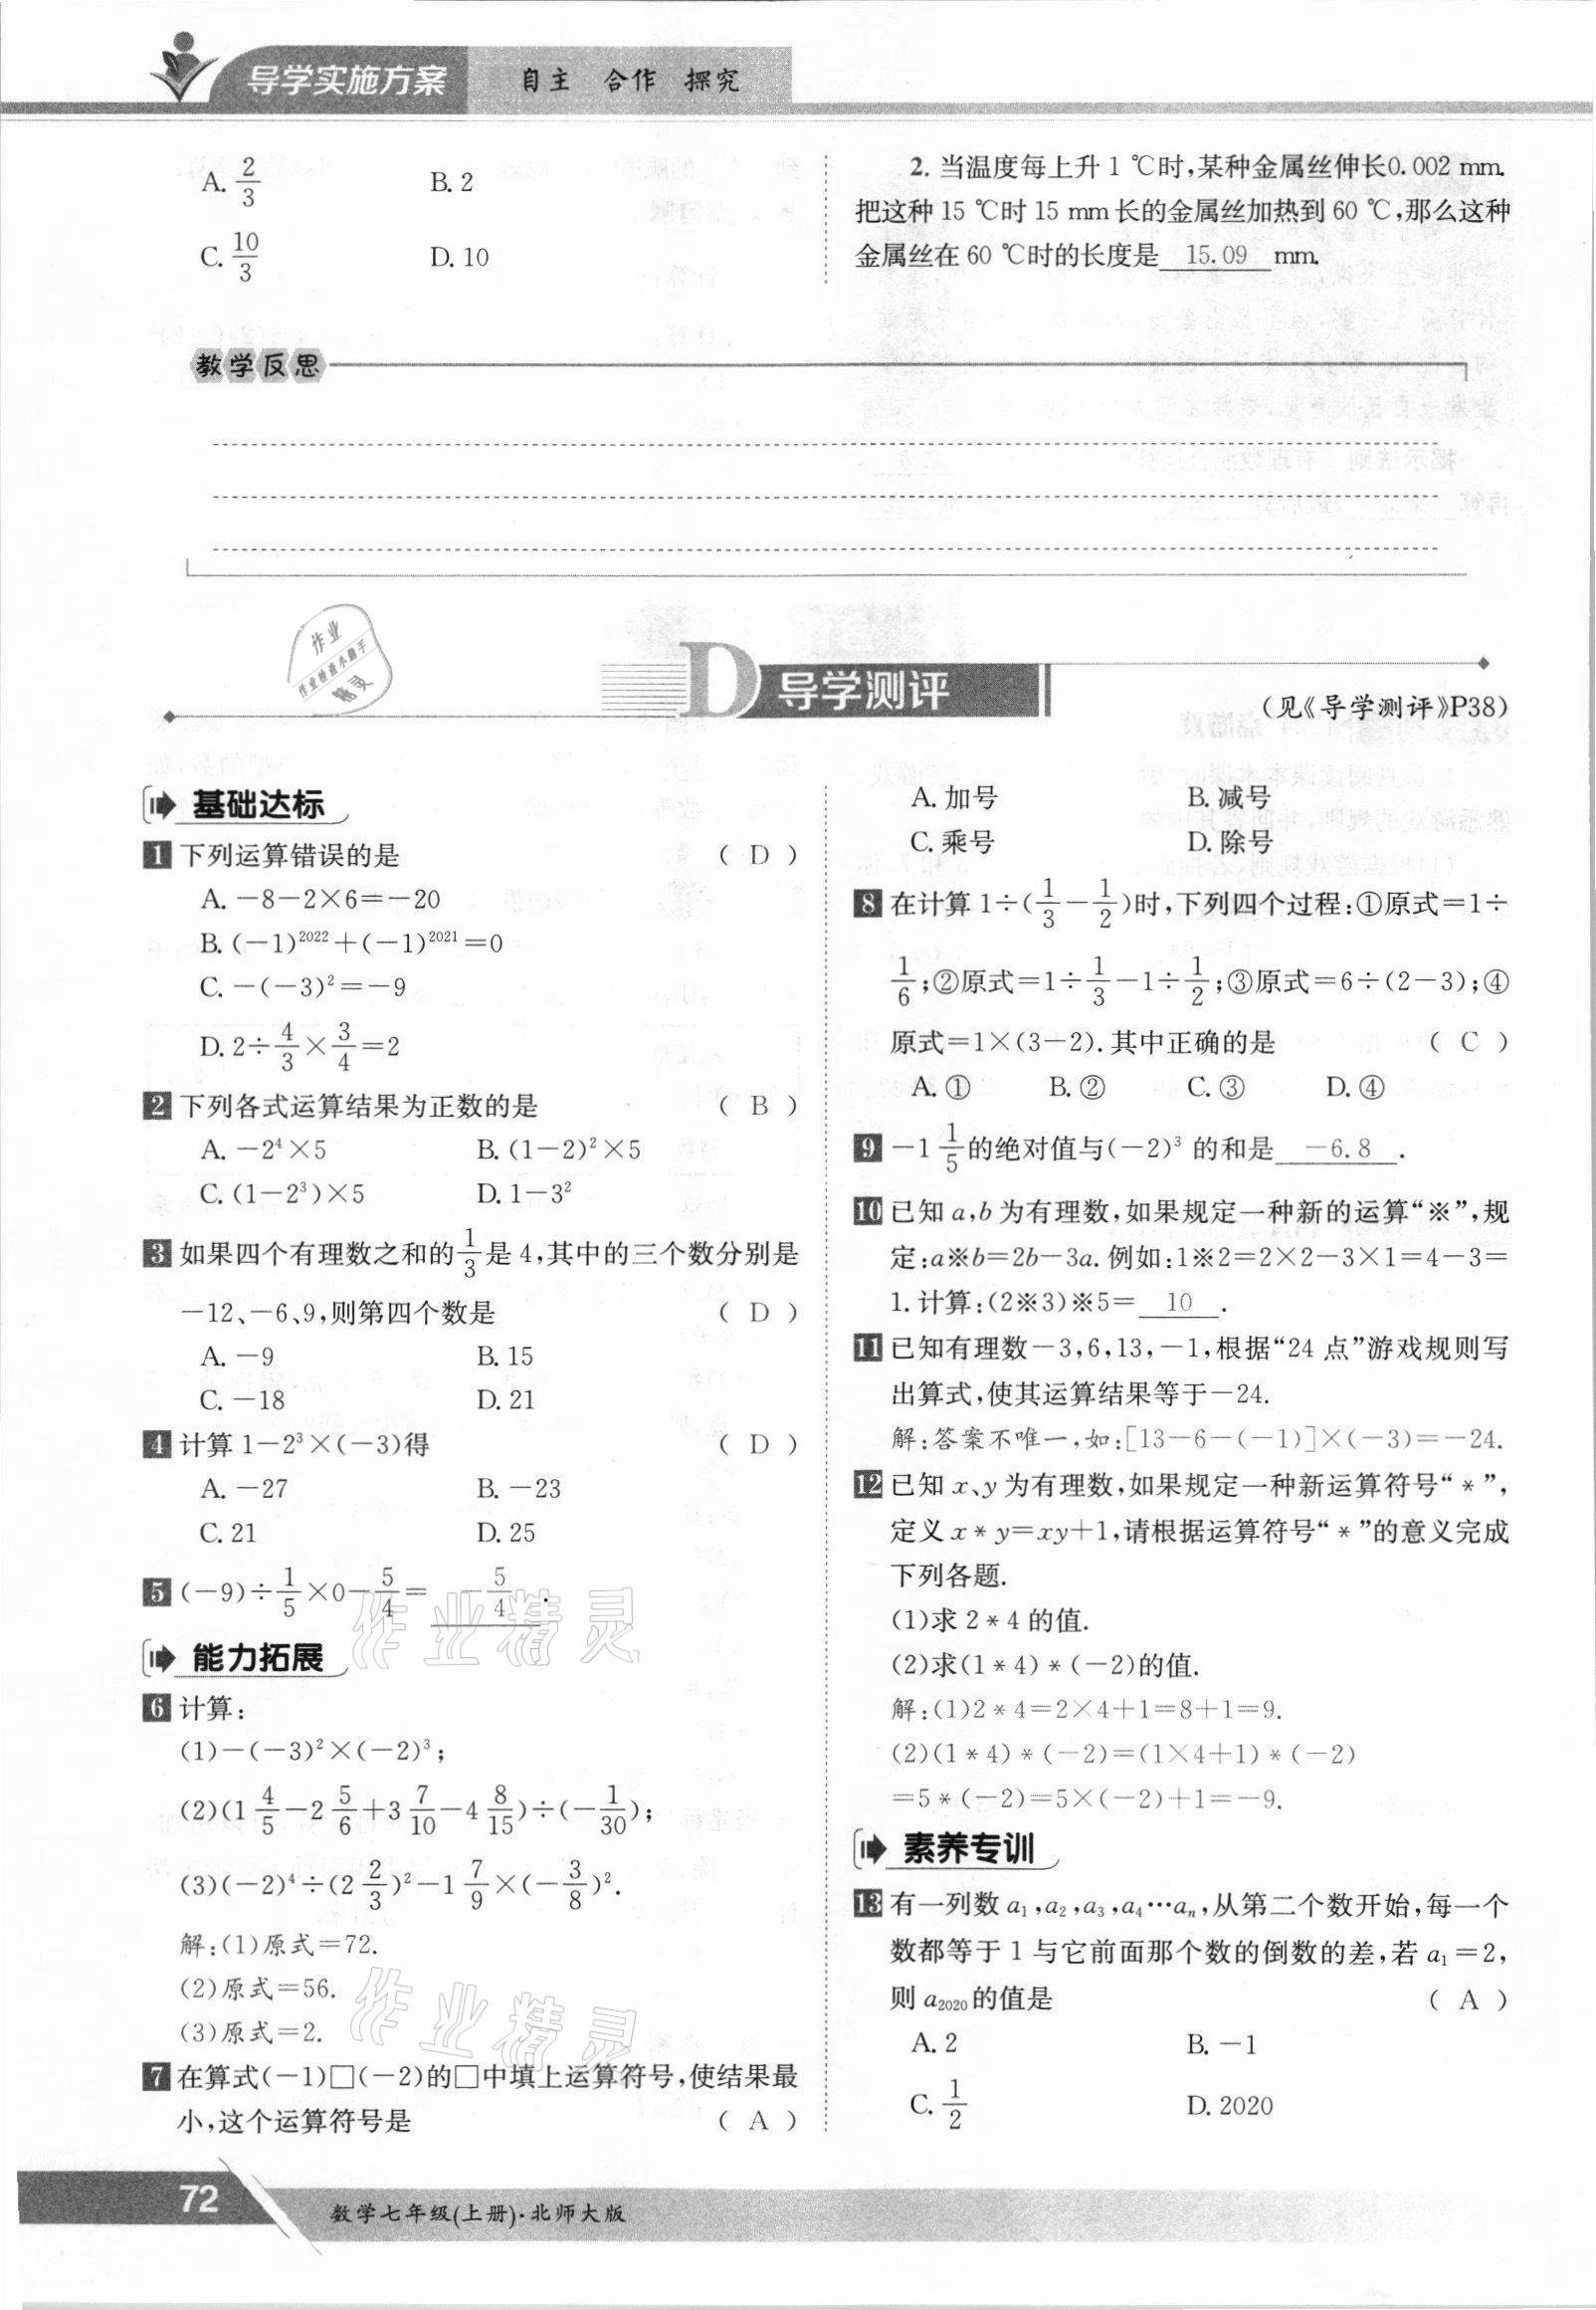 导学实施方案 自主 合作 探究
A. 2/3 B. 2
C. 10/3 D. 10
2. 当温度每上升 1 ℃时,某种金属丝伸长0.002 mm.
把这种 15 ℃时 15 mm 长的金属丝加热到 60 ℃,那么这种
金属丝在 60 ℃时的长度是 15.09 mm.
教学反思
作业
作业检查小助手
精灵
D 导学测评
(见《导学测评》P38)
基础达标
1 下列运算错误的是 ( D )
A. －8－2×6＝－20
B. (－1)²⁰²²＋(－1)²⁰²¹＝0
C. －(－3)²＝－9
D. 2÷4/3×3/4＝2
2 下列各式运算结果为正数的是 ( B )
A. －2⁴×5 B. (1－2)²×5
C. (1－2³)×5 D. 1－3²
3 如果四个有理数之和的1/3是 4,其中的三个数分别是
－12、－6、9,则第四个数是 ( D )
A. －9 B. 15
C. －18 D. 21
4 计算 1－2³×(－3)得 ( D )
A. －27 B. －23
C. 21 D. 25
5 (－9)÷1/5×0－5/4＝ －5/4 .
能力拓展
6 计算:
(1)－(－3)²×(－2)³;
(2)(1 4/5－2 5/6＋3 7/10－4 8/15)÷(－1/30);
(3)(－2)⁴÷(2 2/3)²－1 7/9×(－3/8)².
解:(1)原式＝72.
(2)原式＝56.
(3)原式＝2.
7 在算式(－1)□(－2)的□中填上运算符号,使结果最
小,这个运算符号是 ( A )
A. 加号 B. 减号
C. 乘号 D. 除号
8 在计算 1÷(1/3－1/2)时,下列四个过程:①原式＝1÷
1/6;②原式＝1÷1/3－1÷1/2;③原式＝6÷(2－3);④
原式＝1×(3－2). 其中正确的是 ( C )
A. ① B. ② C. ③ D. ④
9 －1 1/5的绝对值与(－2)³ 的和是 －6.8 .
10 已知 a,b 为有理数,如果规定一种新的运算“※”,规
定:a※b＝2b－3a. 例如:1※2＝2×2－3×1＝4－3＝
1. 计算:(2※3)※5＝ 10 .
11 已知有理数－3,6,13,－1,根据“24 点”游戏规则写
出算式,使其运算结果等于－24.
解:答案不唯一,如:[13－6－(－1)]×(－3)＝－24.
12 已知 x、y 为有理数,如果规定一种新运算符号“＊”,
定义 x＊y＝xy＋1,请根据运算符号“＊”的意义完成
下列各题.
(1)求 2＊4 的值.
(2)求(1＊4)＊(－2)的值.
解:(1)2＊4＝2×4＋1＝8＋1＝9.
(2)(1＊4)＊(－2)＝(1×4＋1)＊(－2)
＝5＊(－2)＝5×(－2)＋1＝－9.
素养专训
13 有一列数 a₁,a₂,a₃,a₄…aₙ,从第二个数开始,每一个
数都等于 1 与它前面那个数的倒数的差,若 a₁＝2,
则 a₂₀₂₀的值是 ( A )
A. 2 B. －1
C. 1/2 D. 2020
作业精灵
作业精灵
72 数学七年级(上册)·北师大版